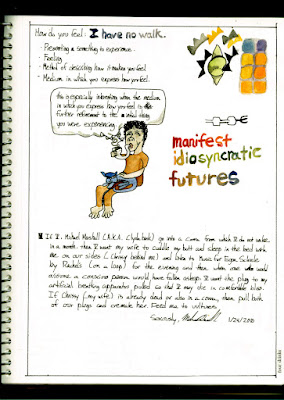 How do you feel: I have no walk.
- Presenting a something to experience.
- Feeling
- Method of describing how it makes you feel
- Medium in which you express how you feel.
this is especially interesting when the medium
in which you express how you feel is
further refinement to the initial thing
you were experiencing
manifest
idiosyncratic
futures
If I, Michael Marshall (A.K.A. Clyde) go into a coma from which I do not wake,
in a month, then I want my wife to cuddle my butt and sleep in the bed with
me on our sides (Chrissy behind me) and listen to Music for Egon Schiele
by Rachel's (on a loop) for the evening and then when one who would
assume a conscious person would have fallen asleep I want the plug to my
artificial breathing apparatus pulled so that I may die in comfortable bliss.
If Chrissy (my wife) is already dead or also in a coma, then pull both
of our plugs and cremate her. Feed me to vultures.
Sincerely,